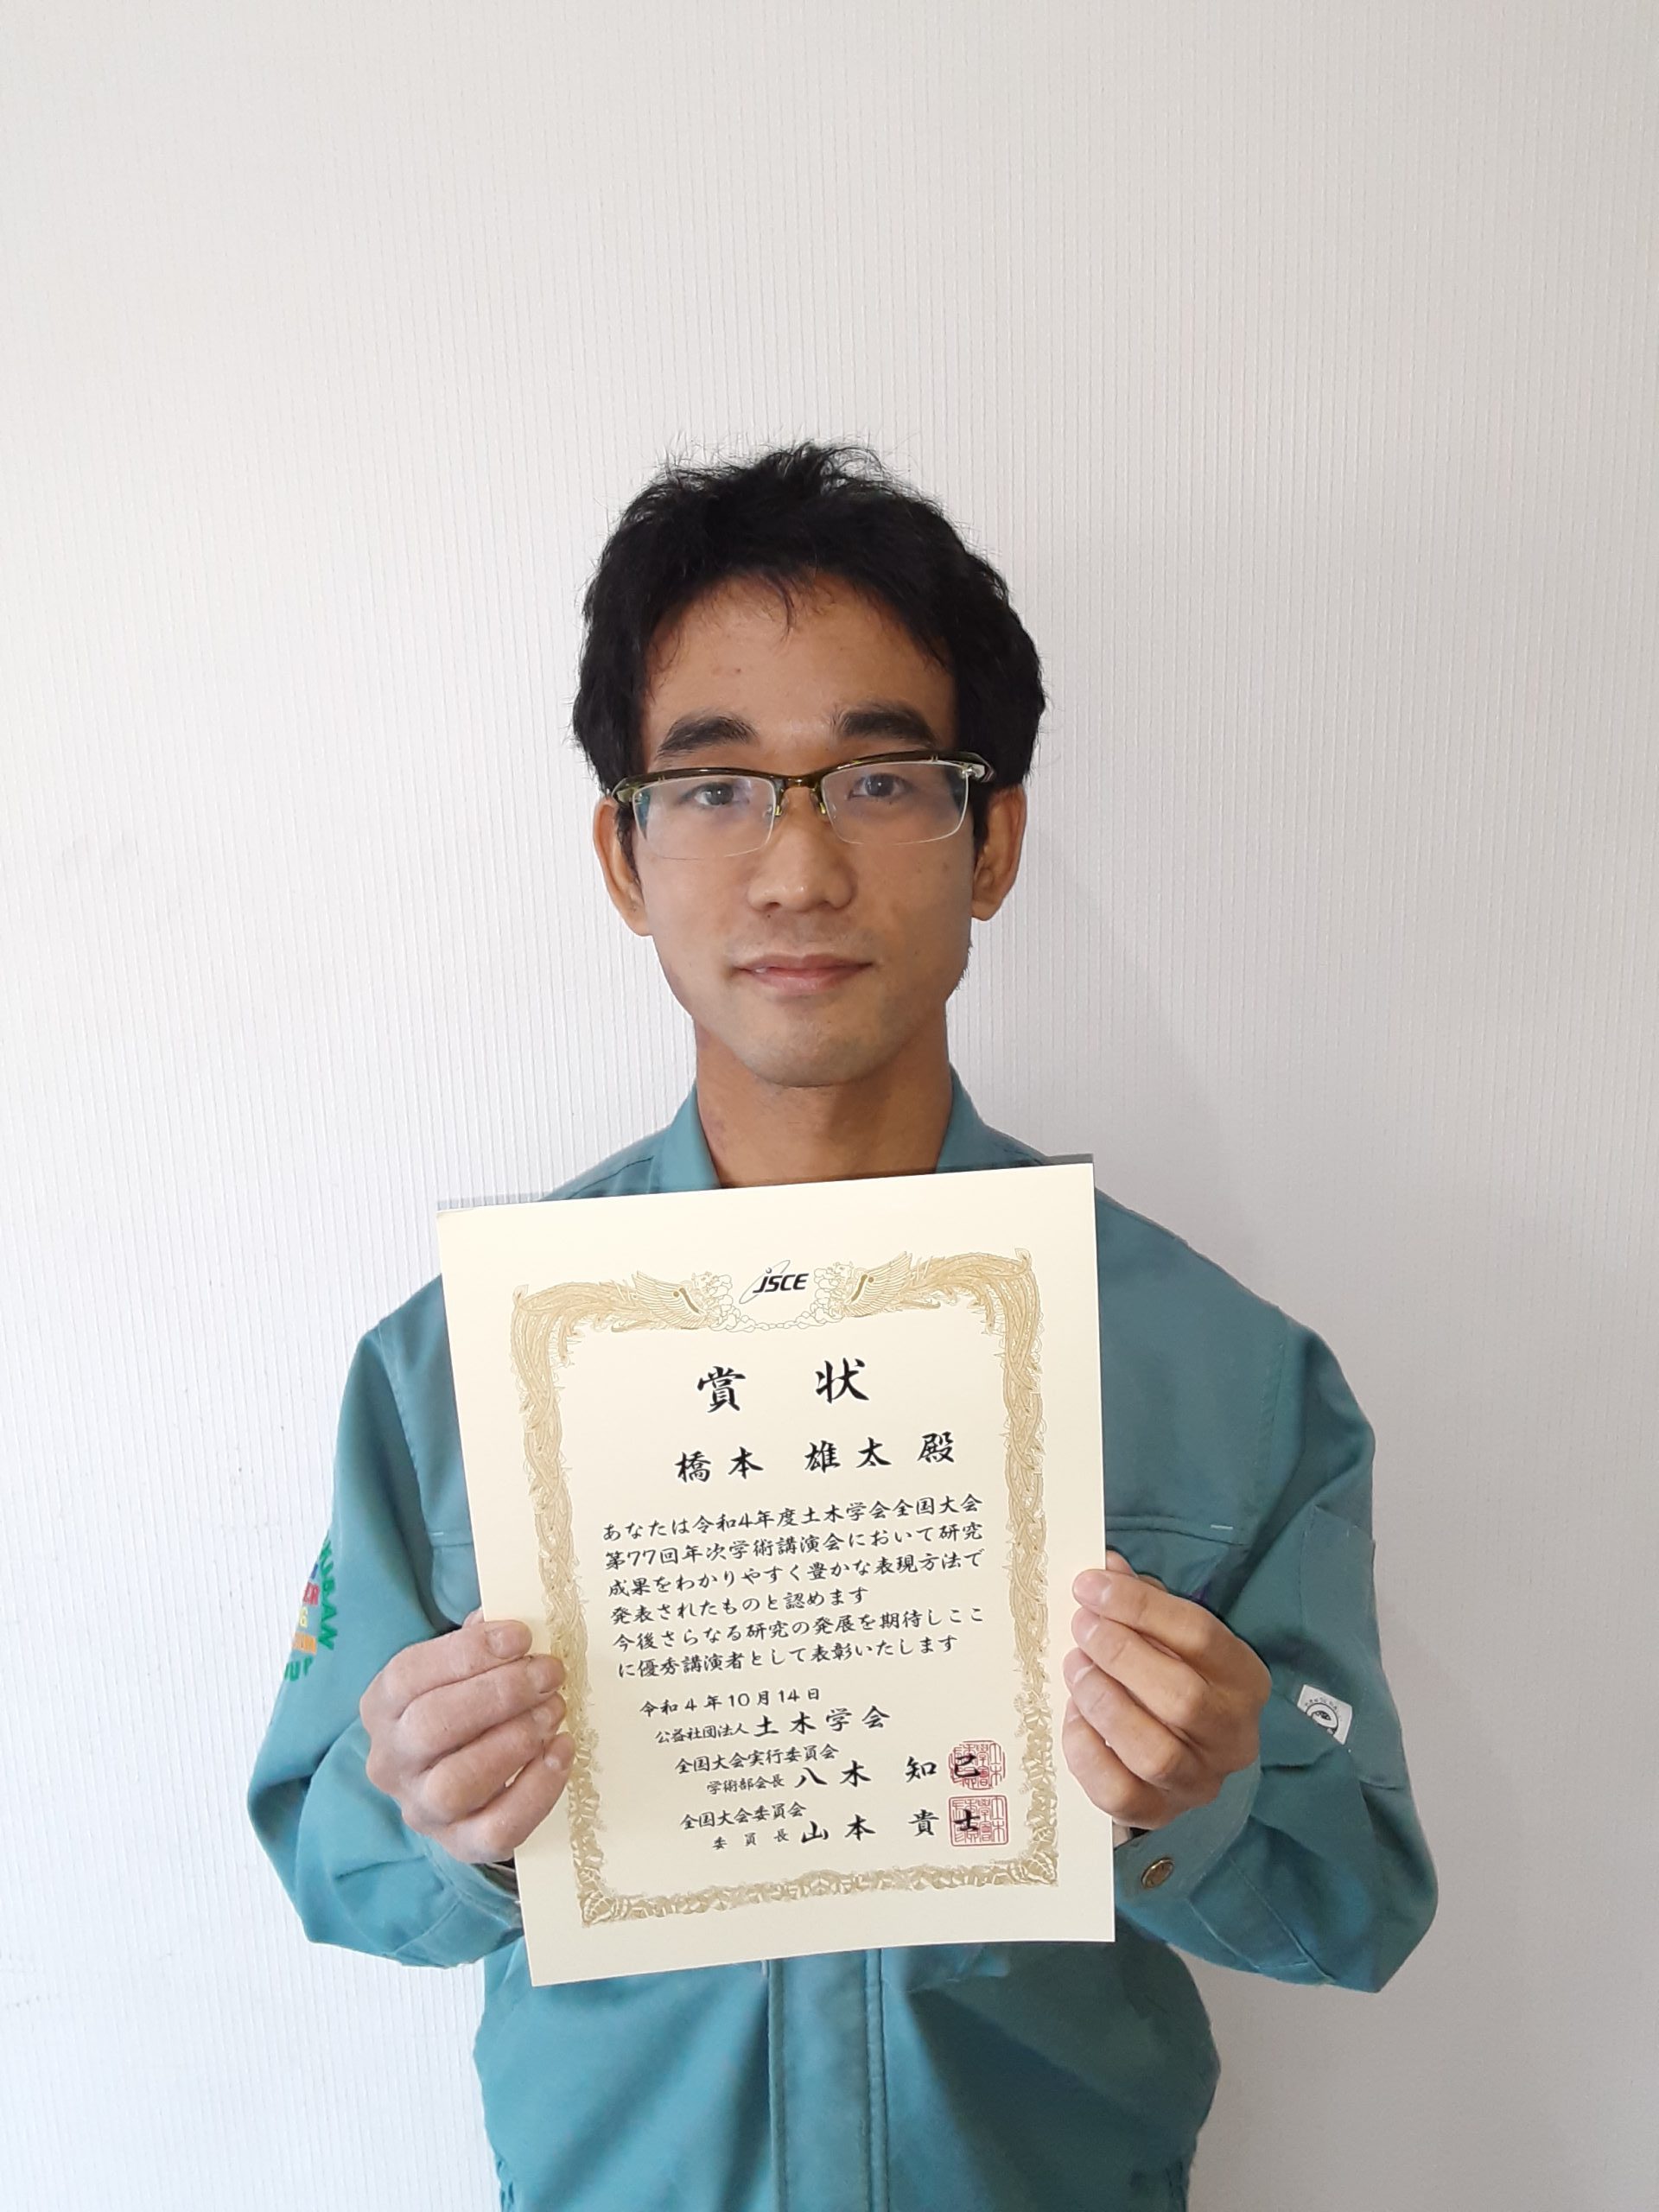 JSCE
賞 状
橋本 雄太 殿
あなたは令和4年度土木学会全国大会
第77回年次学術講演会において研究
成果をわかりやすく豊かな表現方法で
発表されたものと認めます
今後さらなる研究の発展を期待しここ
に優秀講演者として表彰いたします
令和4年10月14日
公益社団法人 土木学会
全国大会実行委員会
学術部会長 八木 知己
全国大会委員会
委員長 山本 貴士